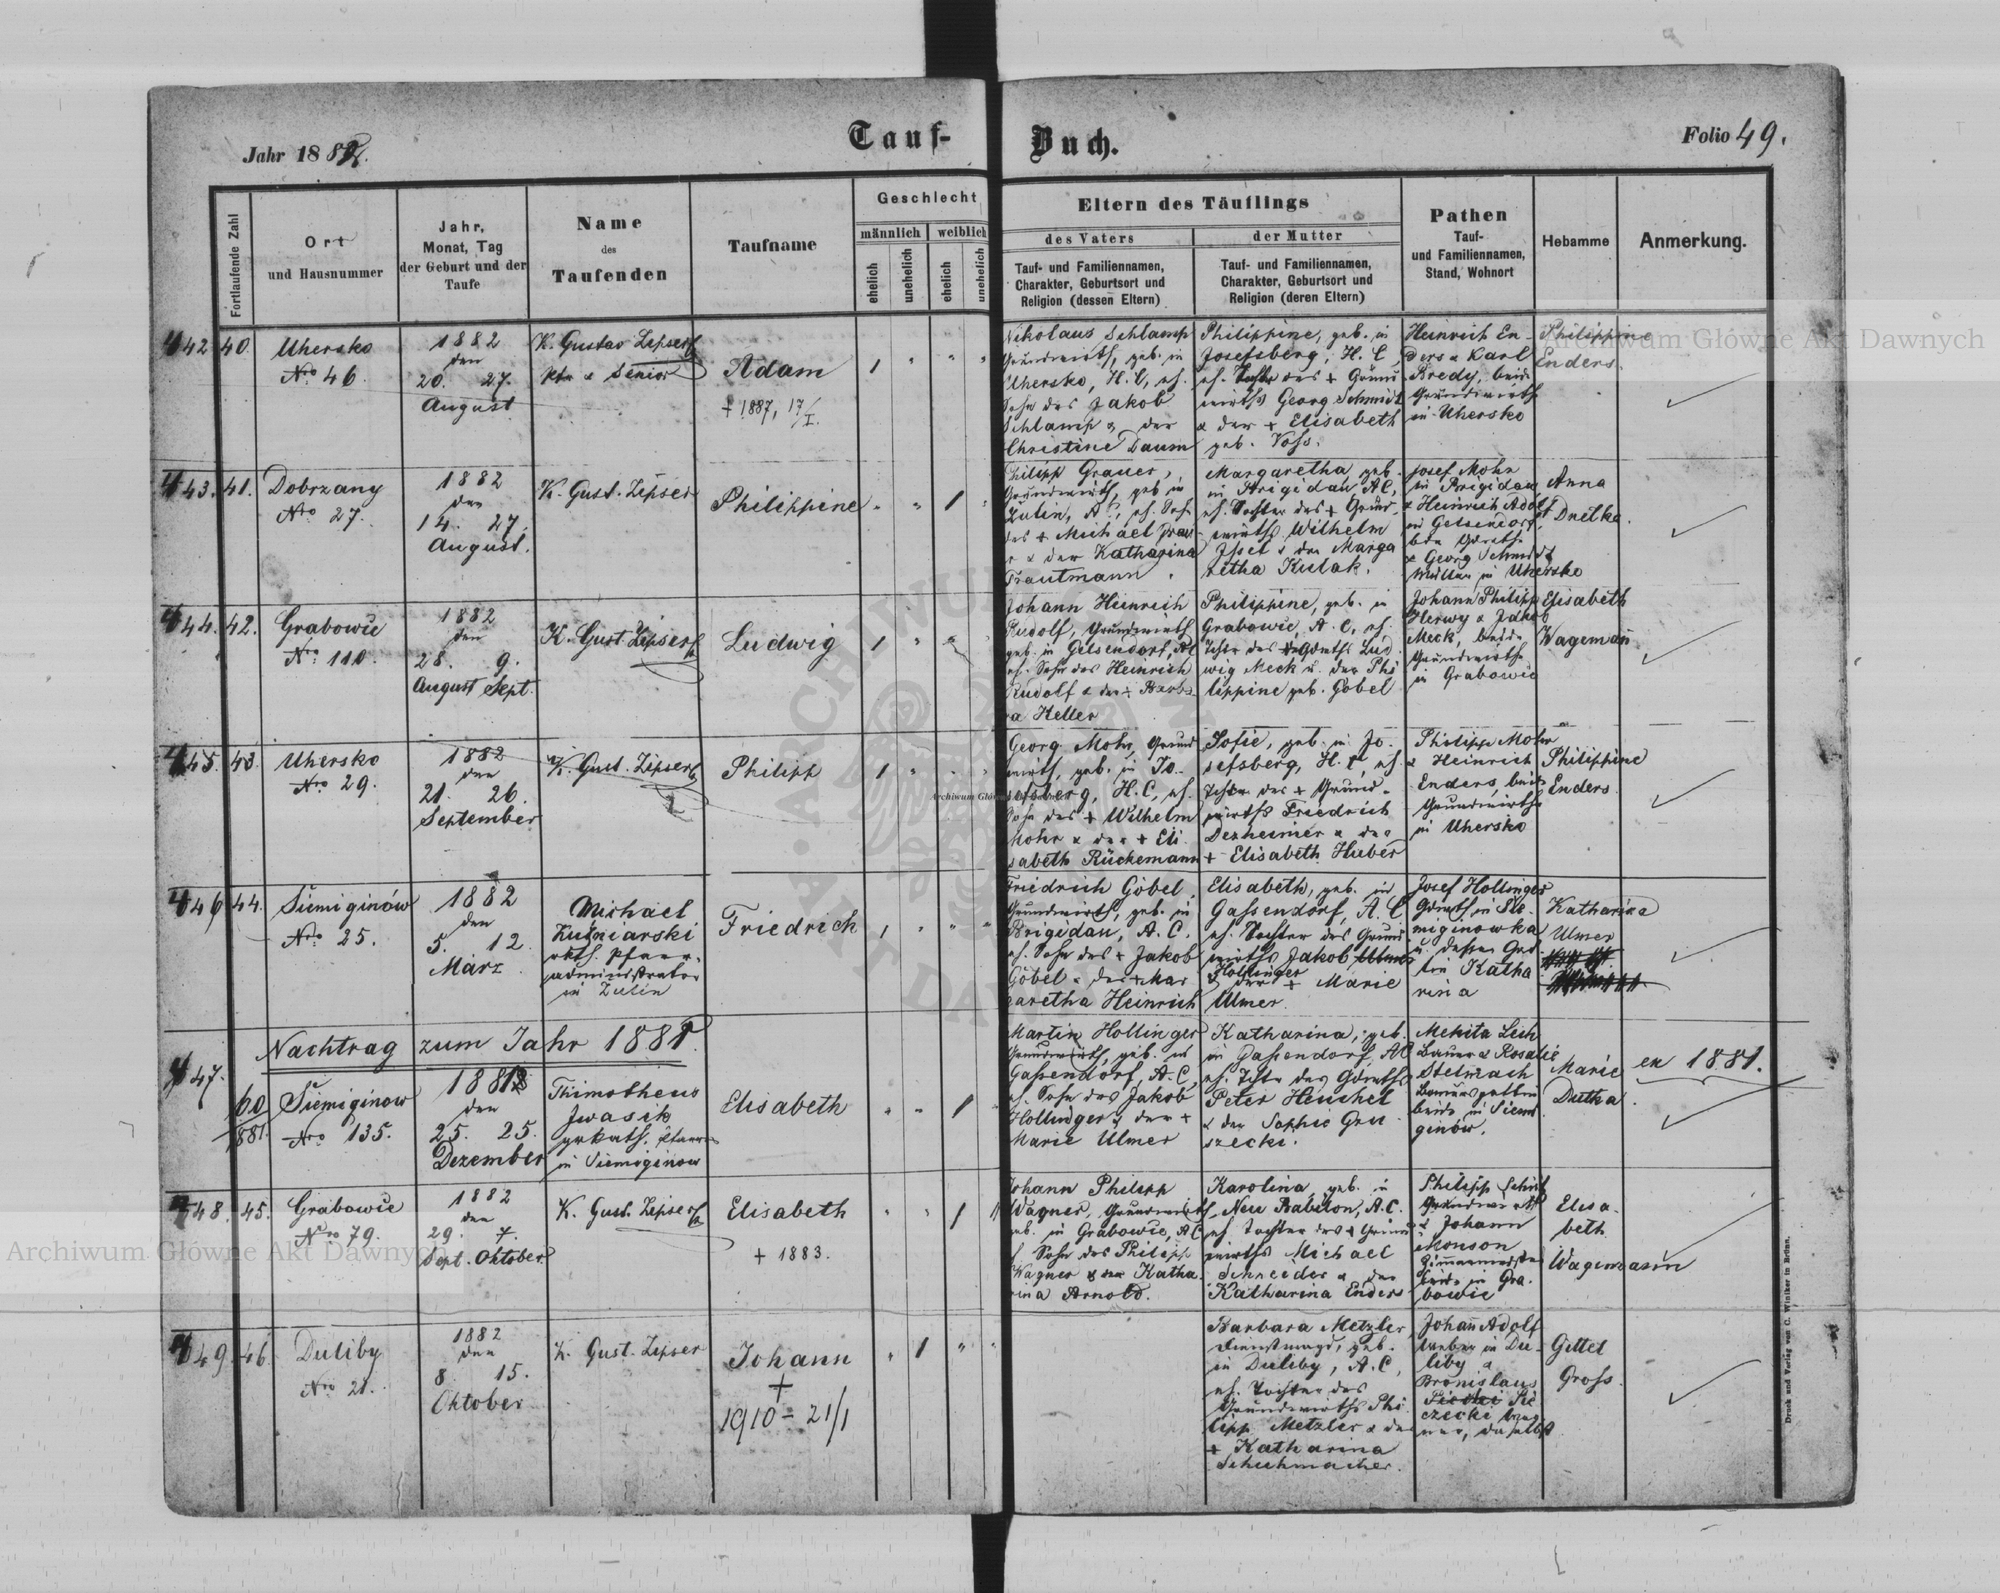 Jahr 1882.
Tauf-
Buch.
Folio 49.
Fortlaufende Zahl
Ort
und Hausnummer
Jahr,
Monat, Tag
der Geburt und der
Taufe
Name
des
Taufenden
Taufname
Geschlecht
männlich
weiblich
ehelich
unehelich
ehelich
unehelich
Eltern des Täuflings
des Vaters
der Mutter
Tauf- und Familiennamen,
Charakter, Geburtsort und
Religion (dessen Eltern)
Tauf- und Familiennamen,
Charakter, Geburtsort und
Religion (deren Eltern)
Pathen
Tauf-
und Familiennamen,
Stand, Wohnort
Hebamme
Anmerkung.
442
40.
Uhersko
Nro 46.
1882
den
20. 27.
August
K. Gustav Zipser
Senior
Adam
+ 1887, 17/I.
1
Nikolaus Schlamp
Grundwirth, geb. in
Uhersko, H.C, eh.
Sohn des Jakob
Schlamp & der
Christine Daum
Philippine, geb. in
Josefsberg, H.C,
eh. Tochter des + Grund
wirths Georg Schmidt
& der + Elisabeth
geb. Voss.
Heinrich En-
ders & Karl
Bredy, beide
Grundwirthe
in Uhersko
Philippine
Enders.
443.
41.
Dobrzany
Nro 27.
1882
den
14. 27.
August.
K. Gust. Zipser
Philippine
1
Philipp Grauer,
Grundwirth, geb. in
Zulin, A.C, eh. Sohn
des + Michael Grau
r & der Katharina
Trautmann.
Margaretha geb.
in Brigidau A.C,
eh. Tochter des + Grund
wirths Wilhelm
Issel & der Marga
retha Kulak.
Josef Mohr
in Brigidau
& Heinrich Adolf
in Gelsendorf,
& Georg Schmidt
Müller in Uhersko
Anna
Dutka.
444.
42.
Grabowie
Nro 110.
1882
den
28. 9.
August Sept.
K. Gust. Zipser
Ludwig
1
Johann Heinrich
Rudolf, Grundwirth
geb. in Gelsendorf, AC
eh. Sohn des Heinrich
Rudolf & der + Barba
ra Keller
Philippine, geb. in
Grabowie, A.C, eh.
Tochter des Gdwrths Lud
wig Meck u. der Phi
lippine geb. Göbel
Johann Philipp
Herwy & Jakob
Meck, beide
Grundwirthe
in Grabowie
Elisabeth
Wagemañ
445.
43.
Uhersko
Nro 29.
1882
den
21. 26.
September
K. Gust. Zipser
Philipp
1
Georg Mohr, Grund
wirth, geb. in Jo-
sefsberg, H.C, eh.
Sohn des + Wilhelm
Mohr & der + Eli
sabeth Rückemann
Sofie, geb. in Jo-
sefsberg, H.C, eh.
Tochter des + Grund-
wirths Friedrich
Dezheimer & der
+ Elisabeth Huber
Philipp Mohr
& Heinrich
Enders, beide
Grundwirthe
in Uhersko
Philippine
Enders
446
44.
Siemiginów
Nro 25.
1882
den
5. 12.
März
Michael
Kuśniarski
rkth. Pfarr-
administrator
in Zulin
Friedrich
1
Friedrich Göbel,
Grundwirth, geb. in
Brigidau, A.C.
eh. Sohn des + Jakob
Göbel & der + Mar
garetha Heinrich
Elisabeth, geb. in
Gassendorf, A.C
eh. Tochter des Grund
wirths Jakob Ulmer
Hollinger
& der + Marie
Ulmer
Josef Hollinger
Gdwrth in Sie-
miginowka
u. dessen Gat-
tin Katha
rina
Katharina
Ulmer
Nachtrag zum Jahr 1881.
447.
60/881.
Siemiginow
Nro 135.
1881
den
25. 25.
Dezember
Thimotheus
Iwasik
grkath. Pfarrer
in Siemiginow
Elisabeth
1
Martin Hollinger
Grundwirth, geb. in
Gassendorf, A.C,
eh. Sohn des Jakob
Hollinger & der +
Marie Ulmer
Katharina, geb.
in Gassendorf, AC
eh. Tochter des Gdwrths
Peter Heuchel
& der Sophie Gru
szecki.
Mekita Lesh
Bauer & Rosalie
Stelmach
Bauersgattin
beide in Siemi
ginów.
Marie
Dutka.
ex 1881.
448.
45.
Grabowie
Nro 79.
1882
den
29. 7.
Sept. Oktober
K. Gust. Zipser
Elisabeth
+ 1883.
1
Johann Philipp
Wagner, Grundwirth
geb. in Grabowie, AC
eh Sohn des Philipp
Wagner & der Katha-
rina Arnold.
Karolina geb. in
Neu Babilon, A.C.
eh. Tochter des + Grund
wirths Michael
Schneider & der
Katharina Enders
Philipp Schick
Grundwirth
& Johann
Monson
Zimmermeister
beide in Gra-
bowie
Elisa-
beth
Wagemann
449.
46.
Duliby
Nro 21.
1882
den
8. 15.
Oktober
K. Gust. Zipser
Johann
+
1910 - 21/1
1
Barbara Metzler,
Dienstmagd, geb.
in Duliby, A.C,
eh. Tochter des
Grundwirths Phi
lipp Metzler & der
+ Katharina
Schuhmacher.
Johañ Adolf
Weber in Du-
liby &
Bronislaus
Sie
czecki
daselbst
Gittel
Gross.
Druck und Verlag von C. Winiker in Brünn.
Archiwum Główne Akt Dawnych
Archiwum Główne Akt Dawnych